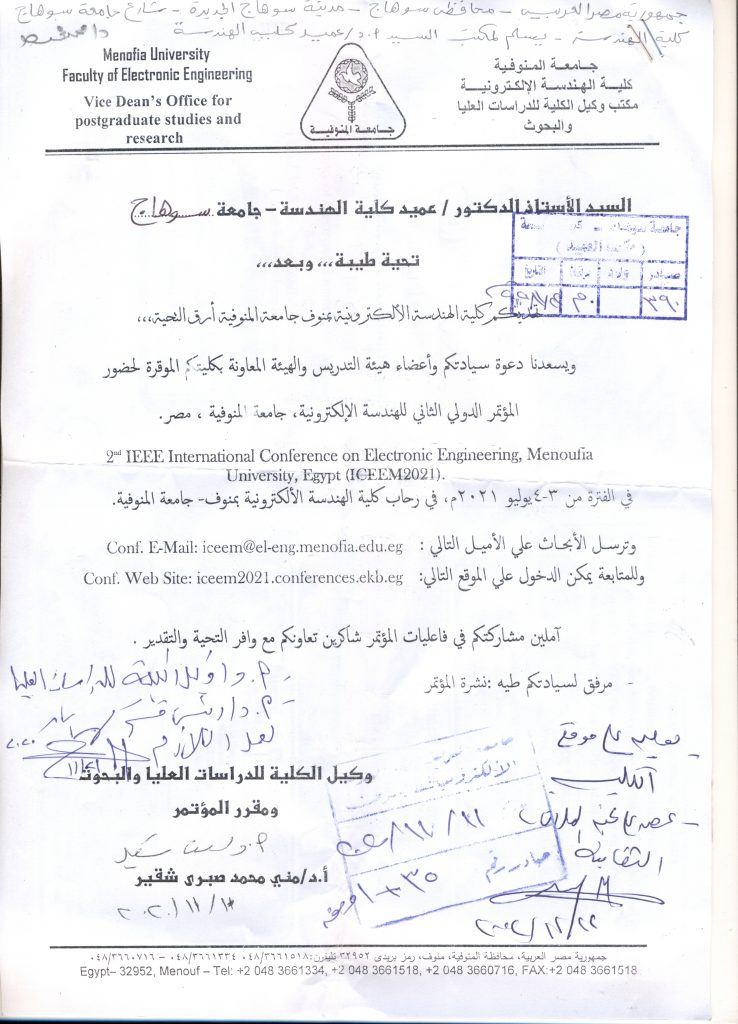 جمهورية مصر العربية - محافظة سوهاج - مدينة سوهاج الجديدة - شارع جامعة سوهاج
كلية الهندسة - يسلم لمكتب السيد أ.د/ عميد كلية الهندسة
Menofia University
Faculty of Electronic Engineering
Vice Dean's Office for
postgraduate studies and
research
جامعة المنوفية
جامعة المنوفية
كلية الهندسة الإلكترونية
مكتب وكيل الكلية للدراسات العليا
والبحوث
السيد الأستاذ الدكتور / عميد كلية الهندسة – جامعة سوهاج
تحية طيبة ،،، وبعد ،،،
جامعة
صادر
التاريخ
٣٩٠
تهديكم كلية الهندسة الألكترونية بمنوف جامعة المنوفية أرق التحية ،،،
ويسعدنا دعوة سيادتكم وأعضاء هيئة التدريس والهيئة المعاونة بكليتكم الموقرة لحضور
المؤتمر الدولي الثاني للهندسة الإلكترونية، جامعة المنوفية ، مصر.
2nd IEEE International Conference on Electronic Engineering, Menoufia
University, Egypt (ICEEM2021).
في الفترة من ٣-٤ يوليو ٢٠٢١م، في رحاب كلية الهندسة الألكترونية بمنوف- جامعة المنوفية.
وترسل الأبحاث علي الأميل التالي : Conf. E-Mail: iceem@el-eng.menofia.edu.eg
وللمتابعة يمكن الدخول علي الموقع التالي: Conf. Web Site: iceem2021.conferences.ekb.eg
آملين مشاركتكم في فاعليات المؤتمر شاكرين تعاونكم مع وافر التحية والتقدير .
- مرفق لسيادتكم طيه :نشرة المؤتمر
- أ.د/ وكيل الكلية للدراسات العليا
لعمل اللازم
وكيل الكلية للدراسات العليا والبحوث
ومقرر المؤتمر
أ.د/مني محمد صبرى شقير
٢٠٢٠/١١/
صادر رقم
٣٥
على موقع
الثقافية
٢٠٢٠/١٢/٢٢
جمهورية مصر العربية، محافظة المنوفية، منوف، رمز بريدى ٣٢٩٥٢ تليفون:٠٤٨/٣٦٦١٥١٨ ٠٤٨/٣٦٦١٣٣٤ – ٠٤٨/٣٦٦٠٧١٦
Egypt– 32952, Menouf – Tel: +2 048 3661334, +2 048 3661518, +2 048 3660716, FAX:+2 048 3661518